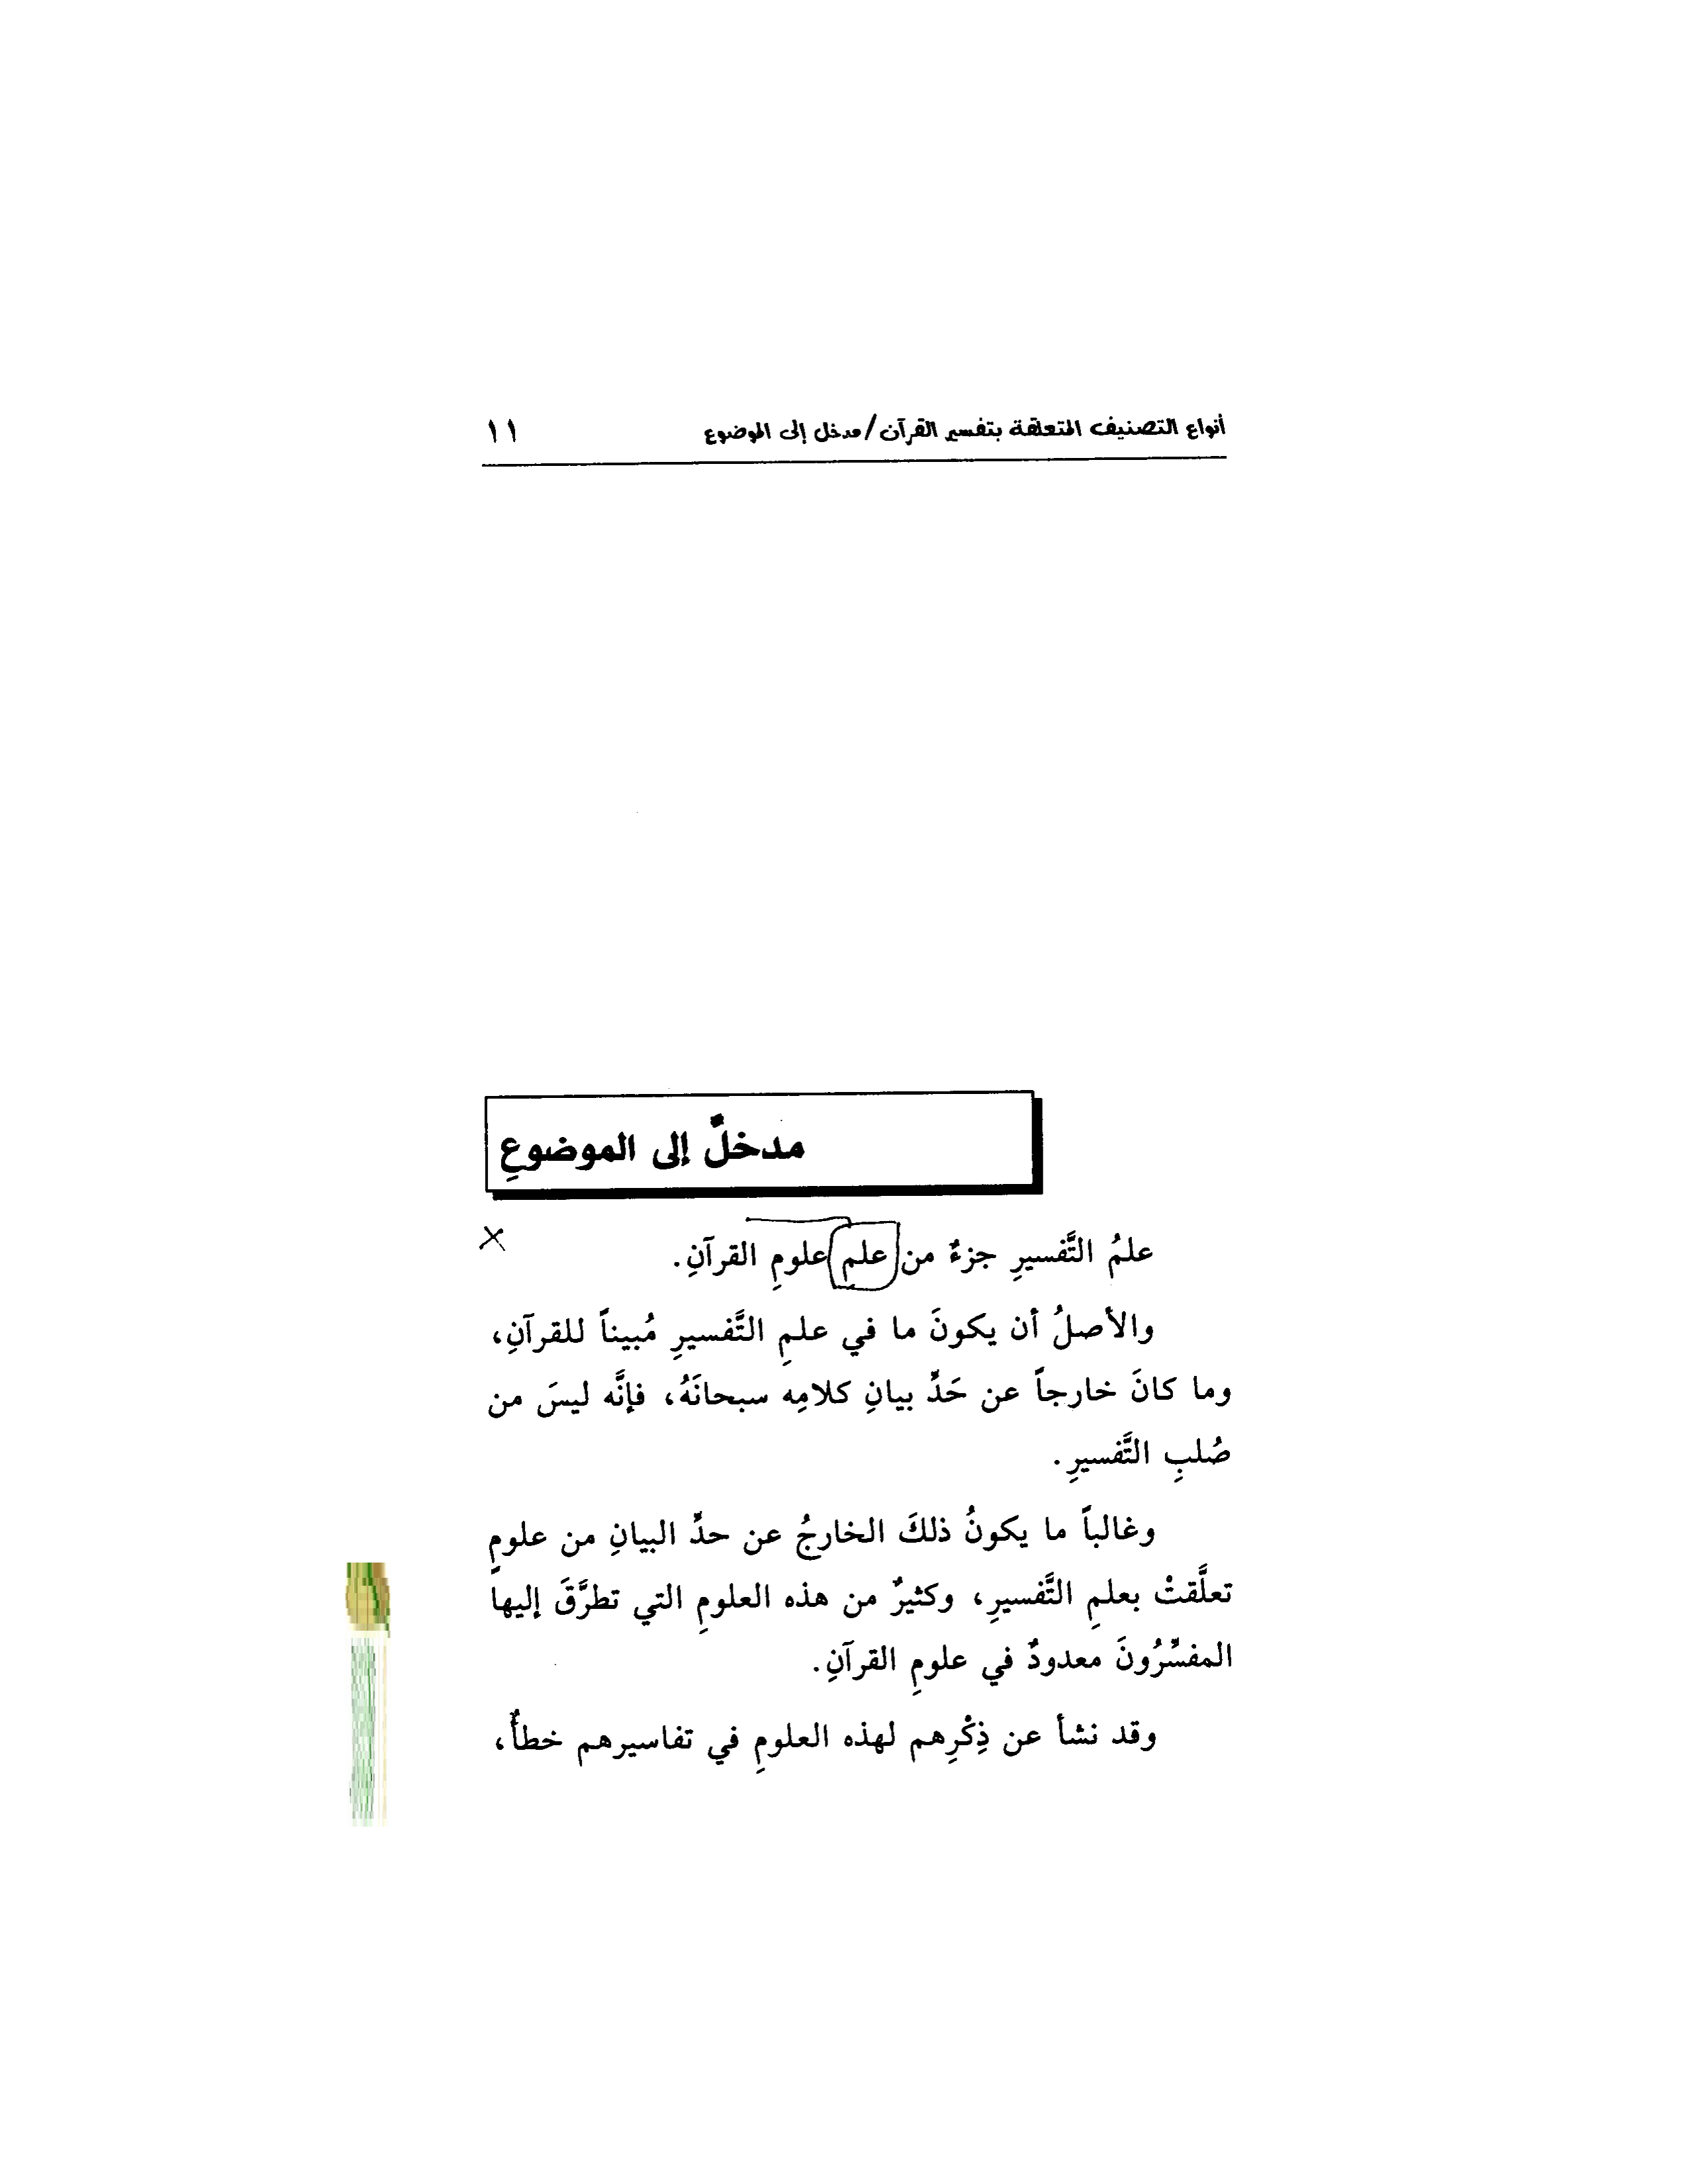 أنواع التصنيف المتعلقة بتفسير القرآن/مدخل إلى الموضوع ١١
مدخلٌ إلى الموضوعِ
علمُ التَّفسيرِ جزءٌ من علم علومِ القرآنِ.
والأصلُ أن يكونَ ما في علمِ التَّفسيرِ مُبيناً للقرآنِ،
وما كانَ خارجاً عن حَدِّ بيانِ كلامِه سبحانَهُ، فإنَّه ليسَ من
صُلبِ التَّفسيرِ.
وغالباً ما يكونُ ذلكَ الخارجُ عن حدِّ البيانِ من علومٍ
تعلَّقتْ بعلمِ التَّفسيرِ، وكثيرٌ من هذه العلومِ التي تطرَّقَ إليها
المفسِّرُونَ معدودٌ في علومِ القرآنِ.
وقد نشأ عن ذِكْرِهم لهذه العلومِ في تفاسيرهم خطأٌ،